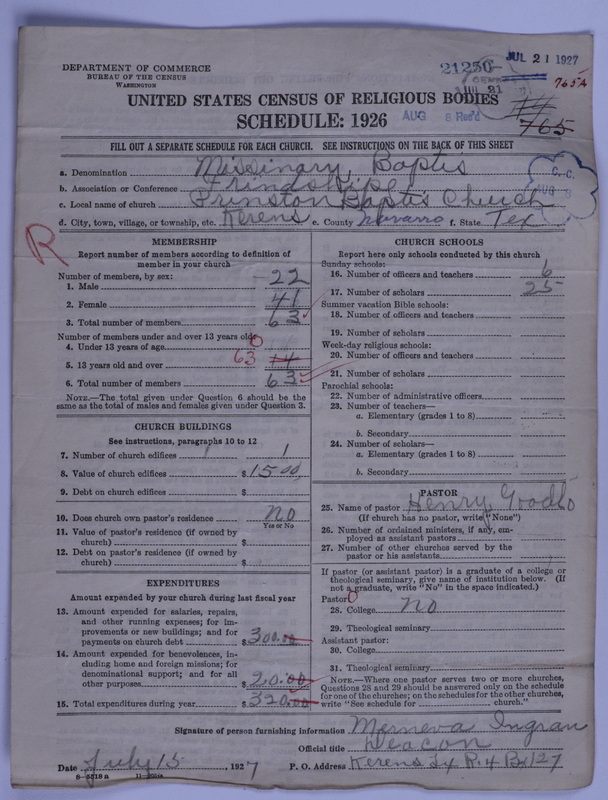 DEPARTMENT OF COMMERCE
BUREAU OF THE CENSUS
WASHINGTON
21250-
JUL 21 1927
765A
JUL 21
UNITED STATES CENSUS OF RELIGIOUS BODIES
SCHEDULE: 1926
AUG 8 Rec'd
765
FILL OUT A SEPARATE SCHEDULE FOR EACH CHURCH. SEE INSTRUCTIONS ON THE BACK OF THIS SHEET
a. Denomination Missinary Baptis
b. Association or Conference Frindship
c. Local name of church Prinston Baptis Church
d. City, town, village, or township, etc. Kerens e. County Navarro f. State Tex
C. C.
AUG
R
MEMBERSHIP
Report number of members according to definition of member in your church
Number of members, by sex:
1. Male 22
2. Female 41
3. Total number of members 63
Number of members under and over 13 years old:
4. Under 13 years of age 0
5. 13 years old and over 63 14
6. Total number of members 63
NOTE.—The total given under Question 6 should be
same as the total of males and females given under Question 3.
CHURCH BUILDINGS
See instructions, paragraphs 10 to 12
7. Number of church edifices 1
8. Value of church edifices $1500
9. Debt on church edifices $
10. Does church own pastor's residence No
Yes or No
11. Value of pastor's residence (if owned by
church) $
12. Debt on pastor's residence (if owned by
church) $
EXPENDITURES
Amount expended by your church during last fiscal year
13. Amount expended for salaries, repairs,
and other running expenses; for im-
provements or new buildings; and for
payments on church debt $300.00
14. Amount expended for benevolences, in-
cluding home and foreign missions; for
denominational support; and for all
other purposes $20.00
15. Total expenditures during year $320.00
CHURCH SCHOOLS
Report here only schools conducted by this church
Sunday schools:
16. Number of officers and teachers 6
17. Number of scholars 25
Summer vacation Bible schools:
18. Number of officers and teachers
19. Number of scholars
Week-day religious schools:
20. Number of officers and teachers
21. Number of scholars
Parochial schools:
22. Number of administrative officers
23. Number of teachers—
a. Elementary (grades 1 to 8)
b. Secondary
24. Number of scholars—
a. Elementary (grades 1 to 8)
b. Secondary
PASTOR
25. Name of pastor Henry
(If church has no pastor, write "None")
26. Number of ordained ministers, if any, em-
ployed as assistant pastors
27. Number of other churches served by the
pastor or his assistants
If pastor (or assistant pastor) is a graduate of a college or
theological seminary, give name of institution below. (If
not a graduate, write "No" in the space indicated.)
Pastor: 0
28. College No
29. Theological seminary
Assistant pastor:
30. College
31. Theological seminary
NOTE.—Where one pastor serves two or more churches,
Questions 28 and 29 should be answered only on the schedule
for one of the churches; on the schedules for the other churches,
write "See schedule for church."
Signature of person furnishing information Merneva Ingran
Official title Deacon
Date July 15, 1927 P. O. Address Kerens Tx R. 4 Bx 127
8—5518 a